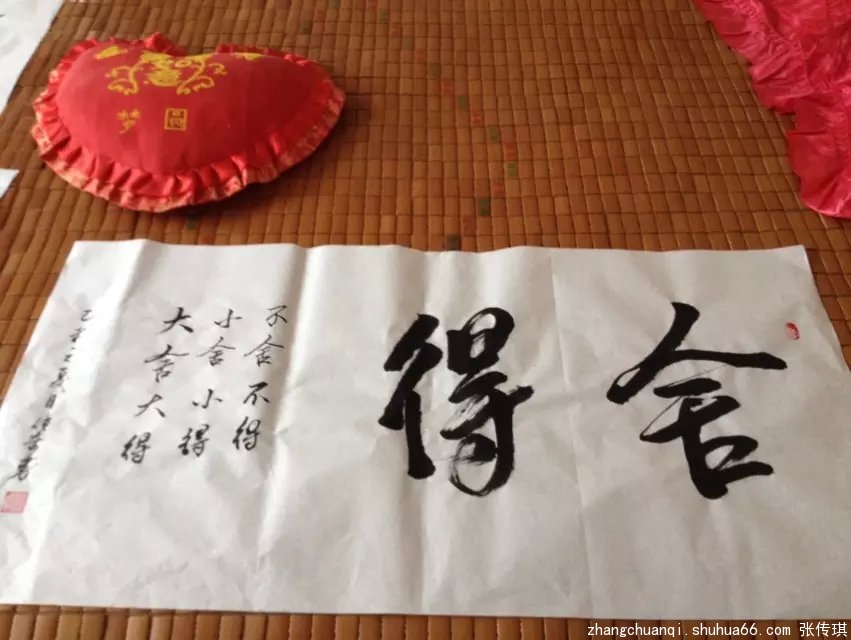 圆梦
舍得
不舍不得
小舍小得
大舍大得
zhangchuanqi.shuhua66.com 张传琪